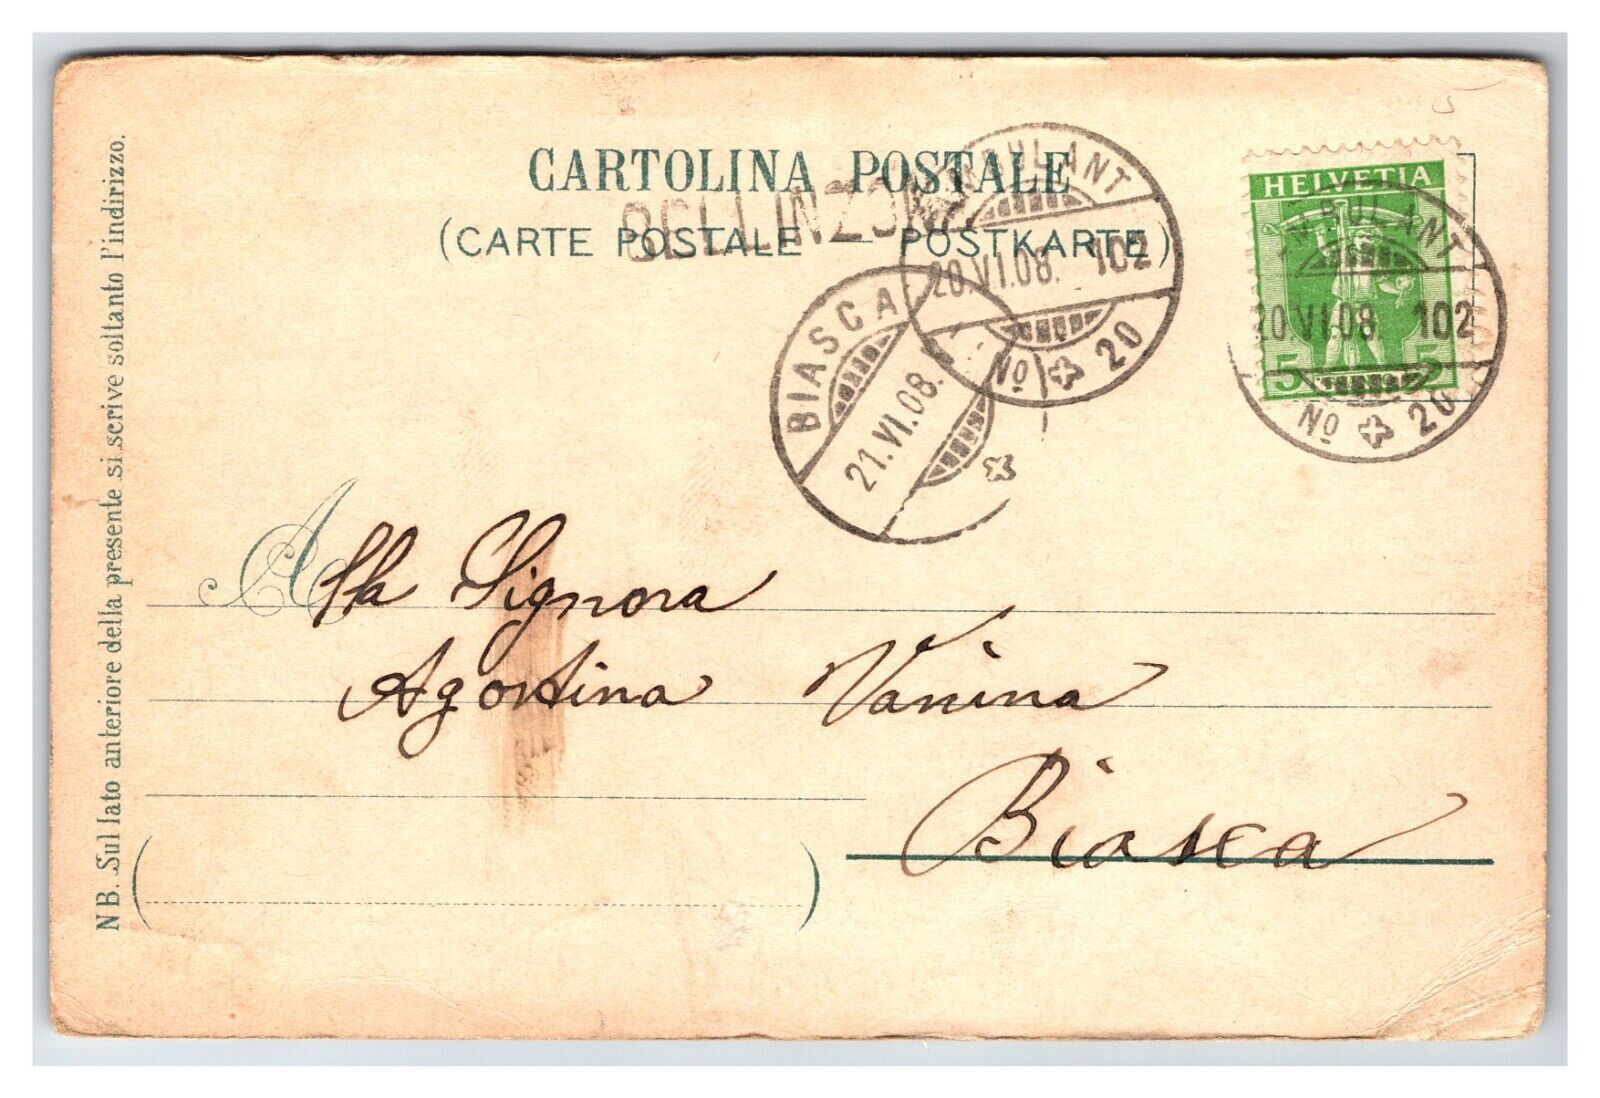 CARTOLINA POSTALE
(CARTE POSTALE — POSTKARTE)
BELLINZONA
AMBULANT
20.VI.08. 102
No 20
BIASCA
21.VI.08.
HELVETIA
5 5
AMBULANT
20.VI.08 102
No 20
Alla Signora
Agostina Vanina
Biasca
NB. Sul lato anteriore della presente si scrive soltanto l'indirizzo.